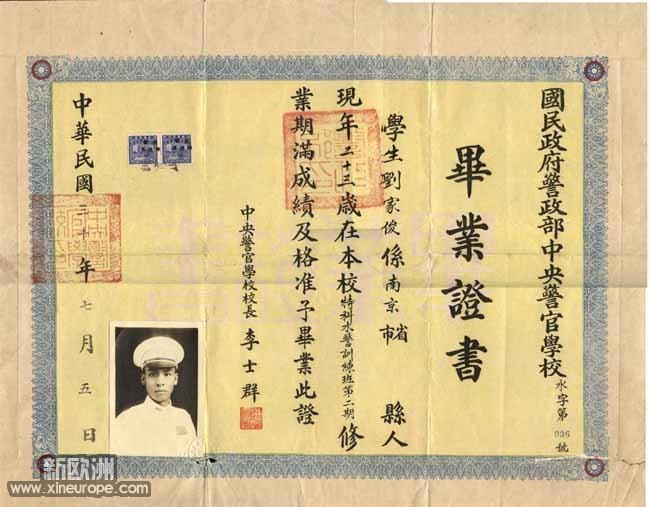 國民政府警政部中央警官學校
水字第036號
畢業證書
學生劉家俊係南京省市 縣人
現年二十三歲在本校特科水警訓練班第二期修
業期滿成績及格准予畢業此證
中央警官學校校長 李士群
中華民國三十年七月五日
新欧洲
www.xineurope.com